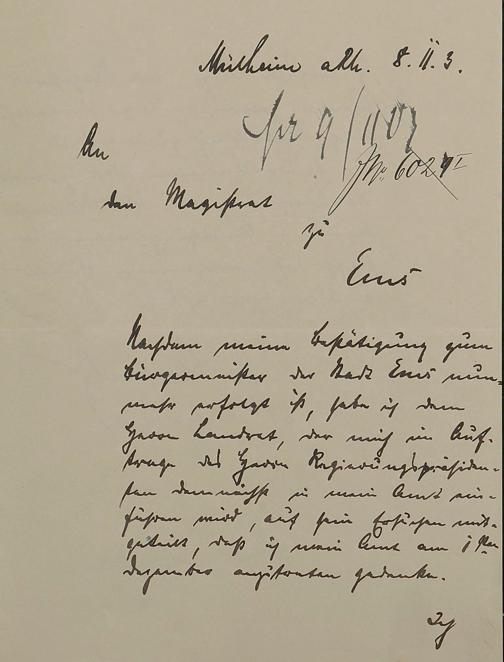 Mülheim a/Rh. 8. 11. 3.
pr 9/11 03
JNo. 6029 I
An
den Magistrat
zu
Ems
Nachdem meine Bestätigung zum
Bürgermeister der Stadt Ems nun-
mehr erfolgt ist, habe ich dem
Herrn Landrat, der mich im Auf-
trage des Herrn Regierungspräsiden-
ten demnächst in mein Amt ein-
führen wird, auf sein Ersuchen mit-
geteilt, daß ich mein Amt am 1sten
Dezember anzutreten gedenke.
Ich